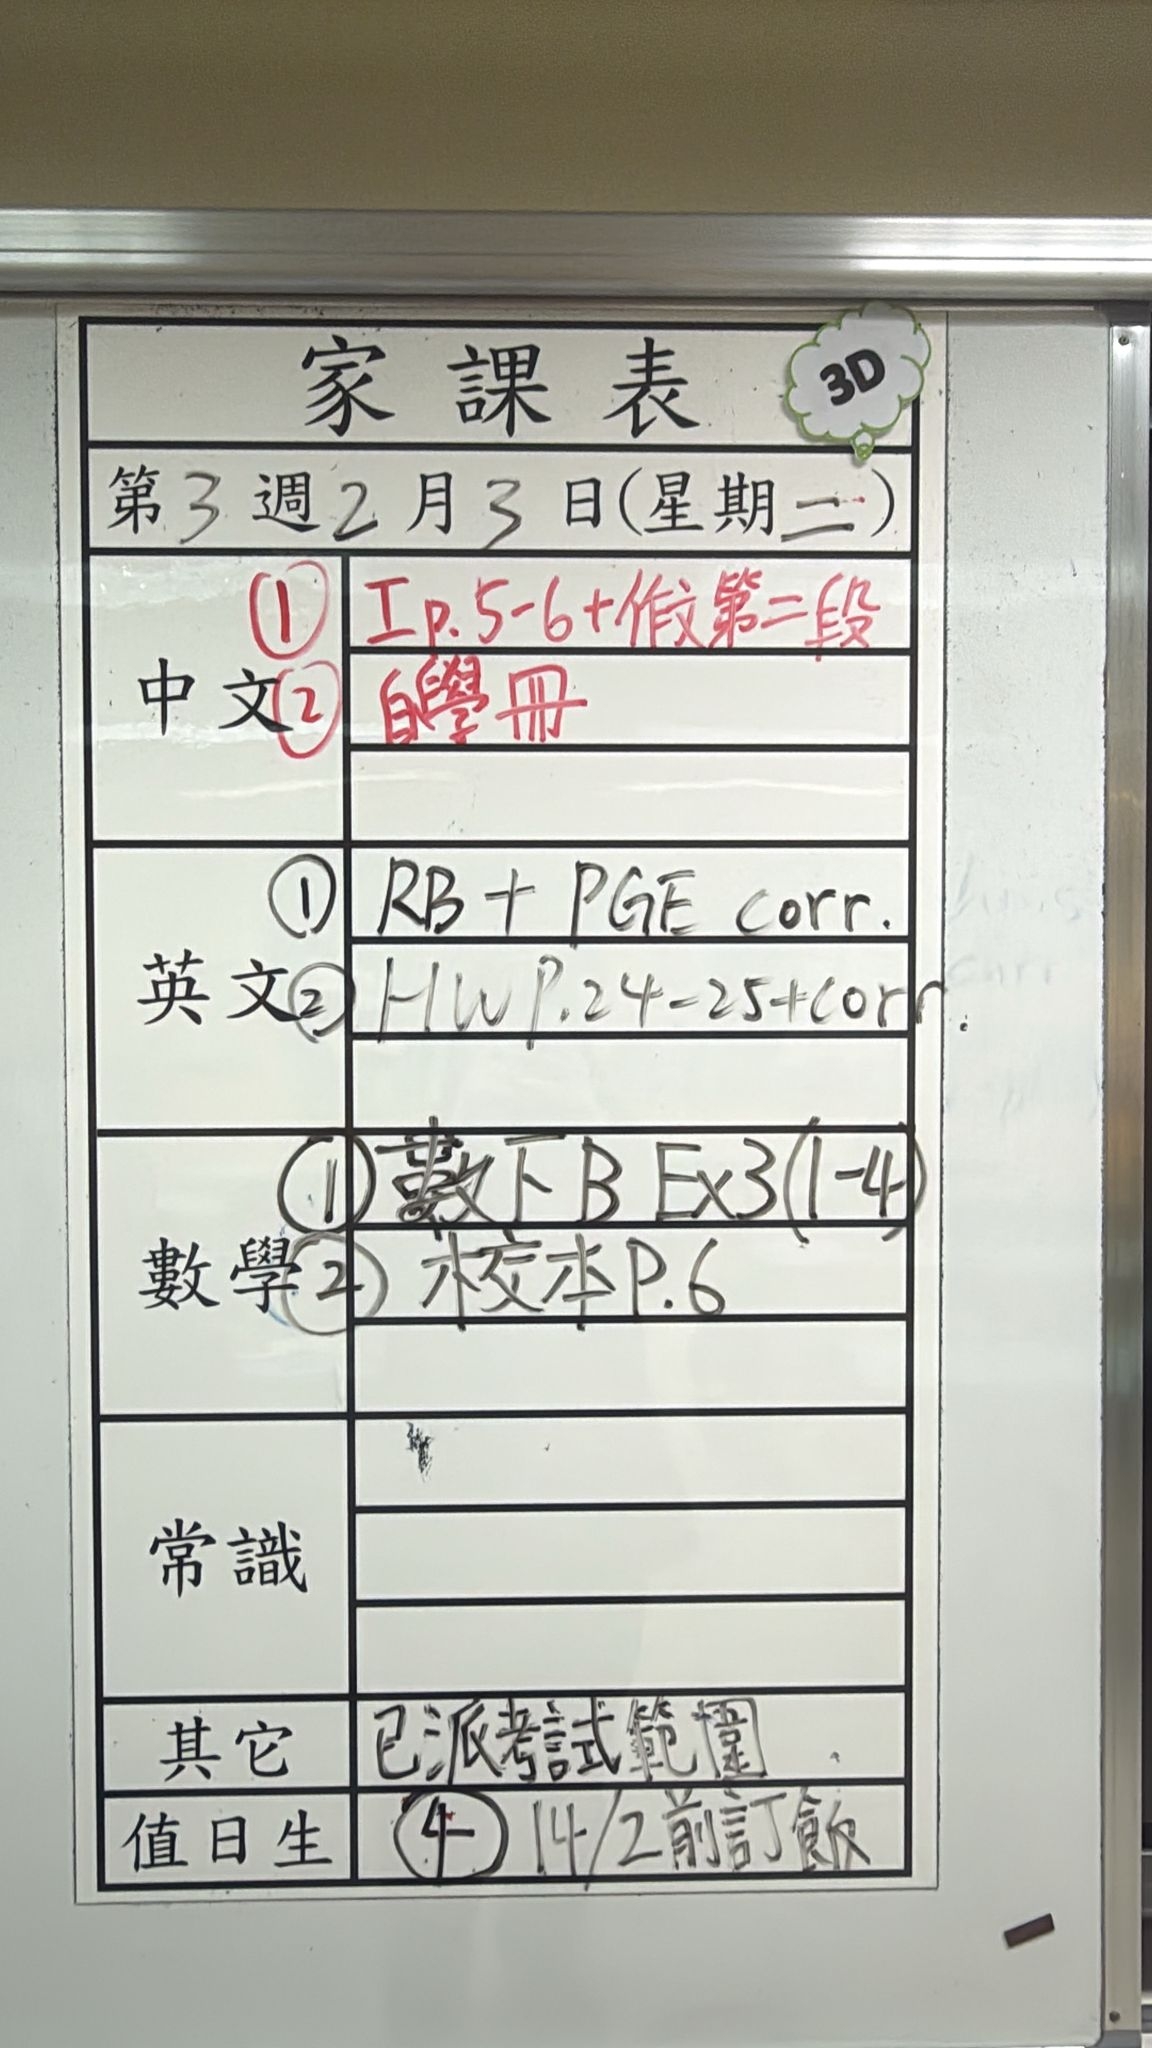 家課表
3D
第3週2月3日(星期二)
中文
① 工p.5-6+作文第二段
② 自學冊
英文
① RB + PGE corr.
② HW P.24-25+corr.
數學
① 數下B Ex3(1-4)
② 校本P.6
常識
其它
已派考試範圍
值日生
④ 14/2前訂飯